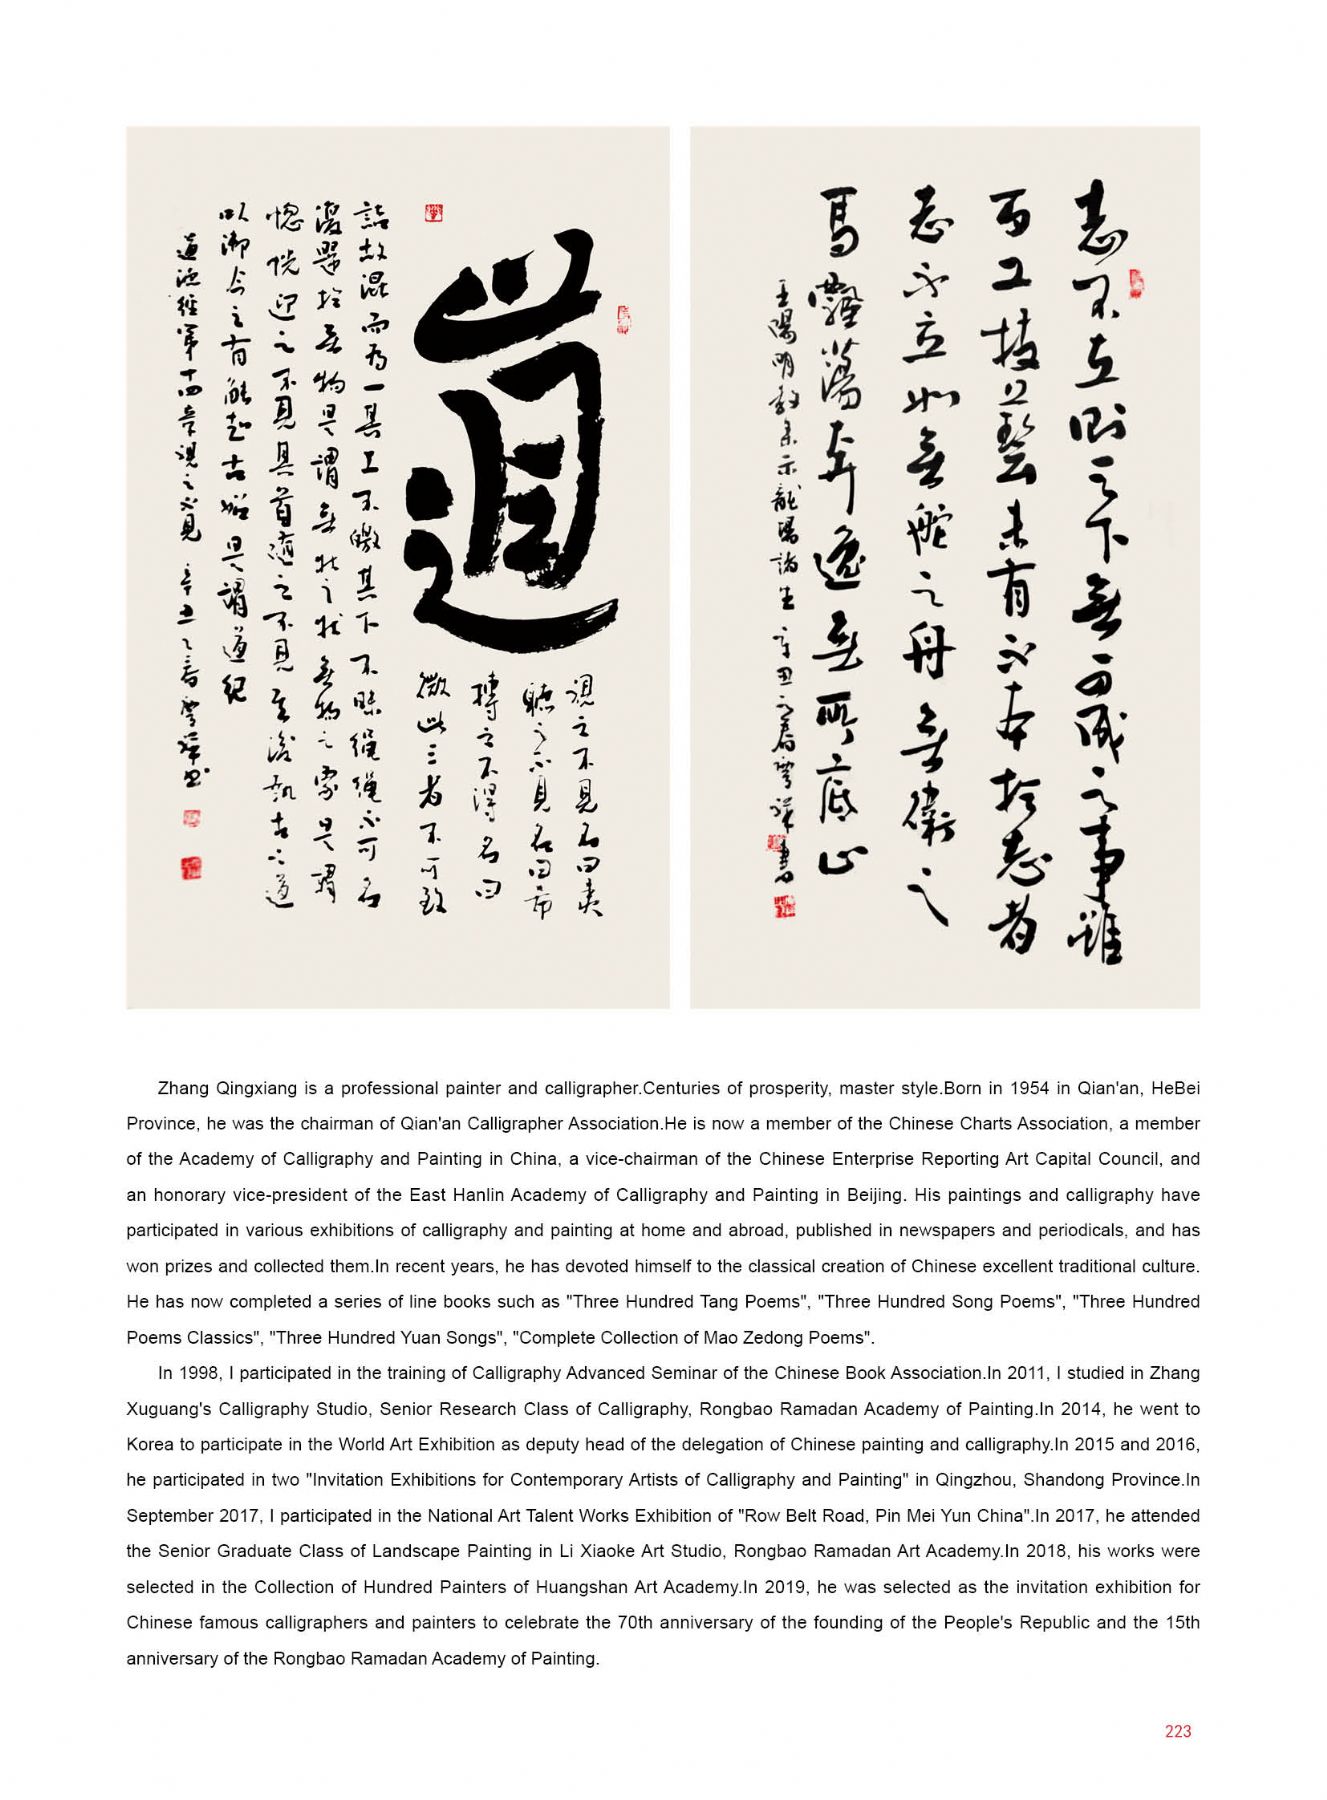 道
視之不見名曰夷
聽之不見名曰希
摶之不得名曰
微此三者不可致
詰故混而為一其上不皦其下不昧繩繩不可名
復歸於無物是謂無狀之狀無物之象是謂
惚恍迎之不見其首隨之不見其後執古之道
以御今之有能知古始是謂道紀
道德經第十四章視之不見 辛丑之春慶祥書
志不立則天下無可成之事雖
百工技藝未有不本於志者
志不立如無舵之舟無銜之
馬飄蕩奔逸無所底止
王陽明教條示龍場諸生 辛丑之春慶祥書
Zhang Qingxiang is a professional painter and calligrapher.Centuries of prosperity, master style.Born in 1954 in Qian'an, HeBei
Province, he was the chairman of Qian'an Calligrapher Association.He is now a member of the Chinese Charts Association, a member
of the Academy of Calligraphy and Painting in China, a vice-chairman of the Chinese Enterprise Reporting Art Capital Council, and
an honorary vice-president of the East Hanlin Academy of Calligraphy and Painting in Beijing. His paintings and calligraphy have
participated in various exhibitions of calligraphy and painting at home and abroad, published in newspapers and periodicals, and has
won prizes and collected them.In recent years, he has devoted himself to the classical creation of Chinese excellent traditional culture.
He has now completed a series of line books such as "Three Hundred Tang Poems", "Three Hundred Song Poems", "Three Hundred
Poems Classics", "Three Hundred Yuan Songs", "Complete Collection of Mao Zedong Poems".
In 1998, I participated in the training of Calligraphy Advanced Seminar of the Chinese Book Association.In 2011, I studied in Zhang
Xuguang's Calligraphy Studio, Senior Research Class of Calligraphy, Rongbao Ramadan Academy of Painting.In 2014, he went to
Korea to participate in the World Art Exhibition as deputy head of the delegation of Chinese painting and calligraphy.In 2015 and 2016,
he participated in two "Invitation Exhibitions for Contemporary Artists of Calligraphy and Painting" in Qingzhou, Shandong Province.In
September 2017, I participated in the National Art Talent Works Exhibition of "Row Belt Road, Pin Mei Yun China".In 2017, he attended
the Senior Graduate Class of Landscape Painting in Li Xiaoke Art Studio, Rongbao Ramadan Art Academy.In 2018, his works were
selected in the Collection of Hundred Painters of Huangshan Art Academy.In 2019, he was selected as the invitation exhibition for
Chinese famous calligraphers and painters to celebrate the 70th anniversary of the founding of the People's Republic and the 15th
anniversary of the Rongbao Ramadan Academy of Painting.
223